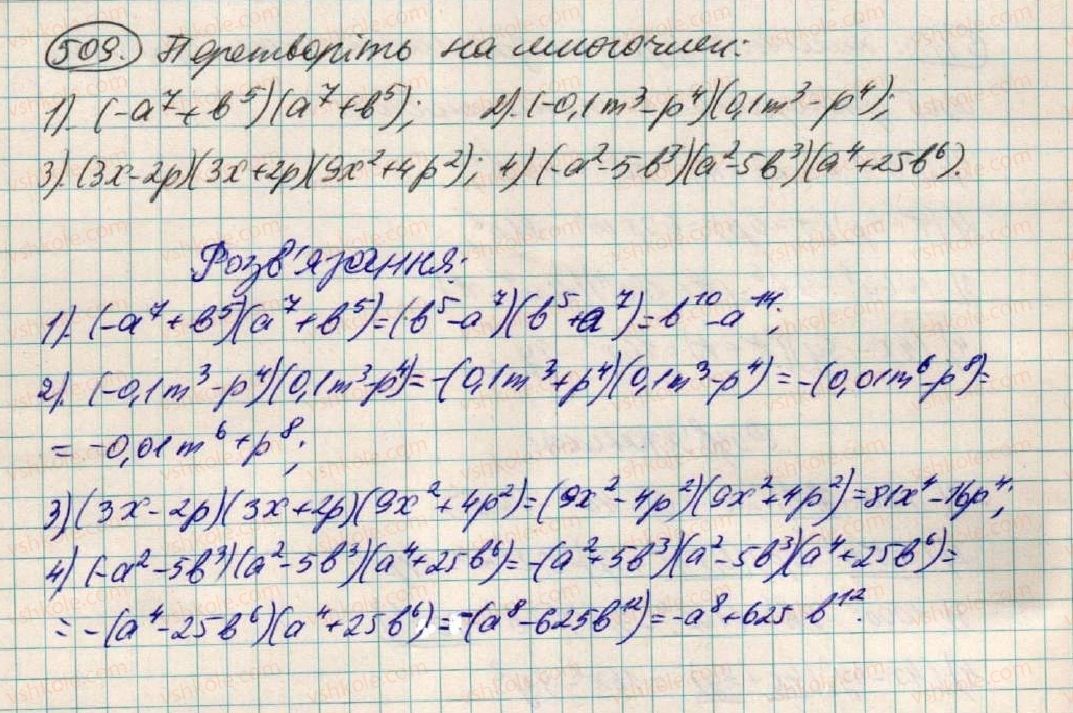 509. Перетворіть на многочлен:
1). (-a⁷+b⁵)(a⁷+b⁵); 2). (-0,1m³-p⁴)(0,1m³-p⁴);
3). (3x-2p)(3x+2p)(9x²+4p²); 4) (-a²-5b³)(a²-5b³)(a⁴+25b⁶).
Розв'язання:
1). (-a⁷+b⁵)(a⁷+b⁵)=(b⁵-a⁷)(b⁵+a⁷)=b¹⁰-a¹⁴;
2). (-0,1m³-p⁴)(0,1m³-p⁴)=-(0,1m³+p⁴)(0,1m³-p⁴)=-(0,01m⁶-p⁸)=
=-0,01m⁶+p⁸;
3) (3x-2p)(3x+2p)(9x²+4p²)=(9x²-4p²)(9x²+4p²)=81x⁴-16p⁴;
4) (-a²-5b³)(a²-5b³)(a⁴+25b⁶)=-(a²+5b³)(a²-5b³)(a⁴+25b⁶)=
=-(a⁴-25b⁶)(a⁴+25b⁶)=-(a⁸-625b¹²)=-a⁸+625b¹².